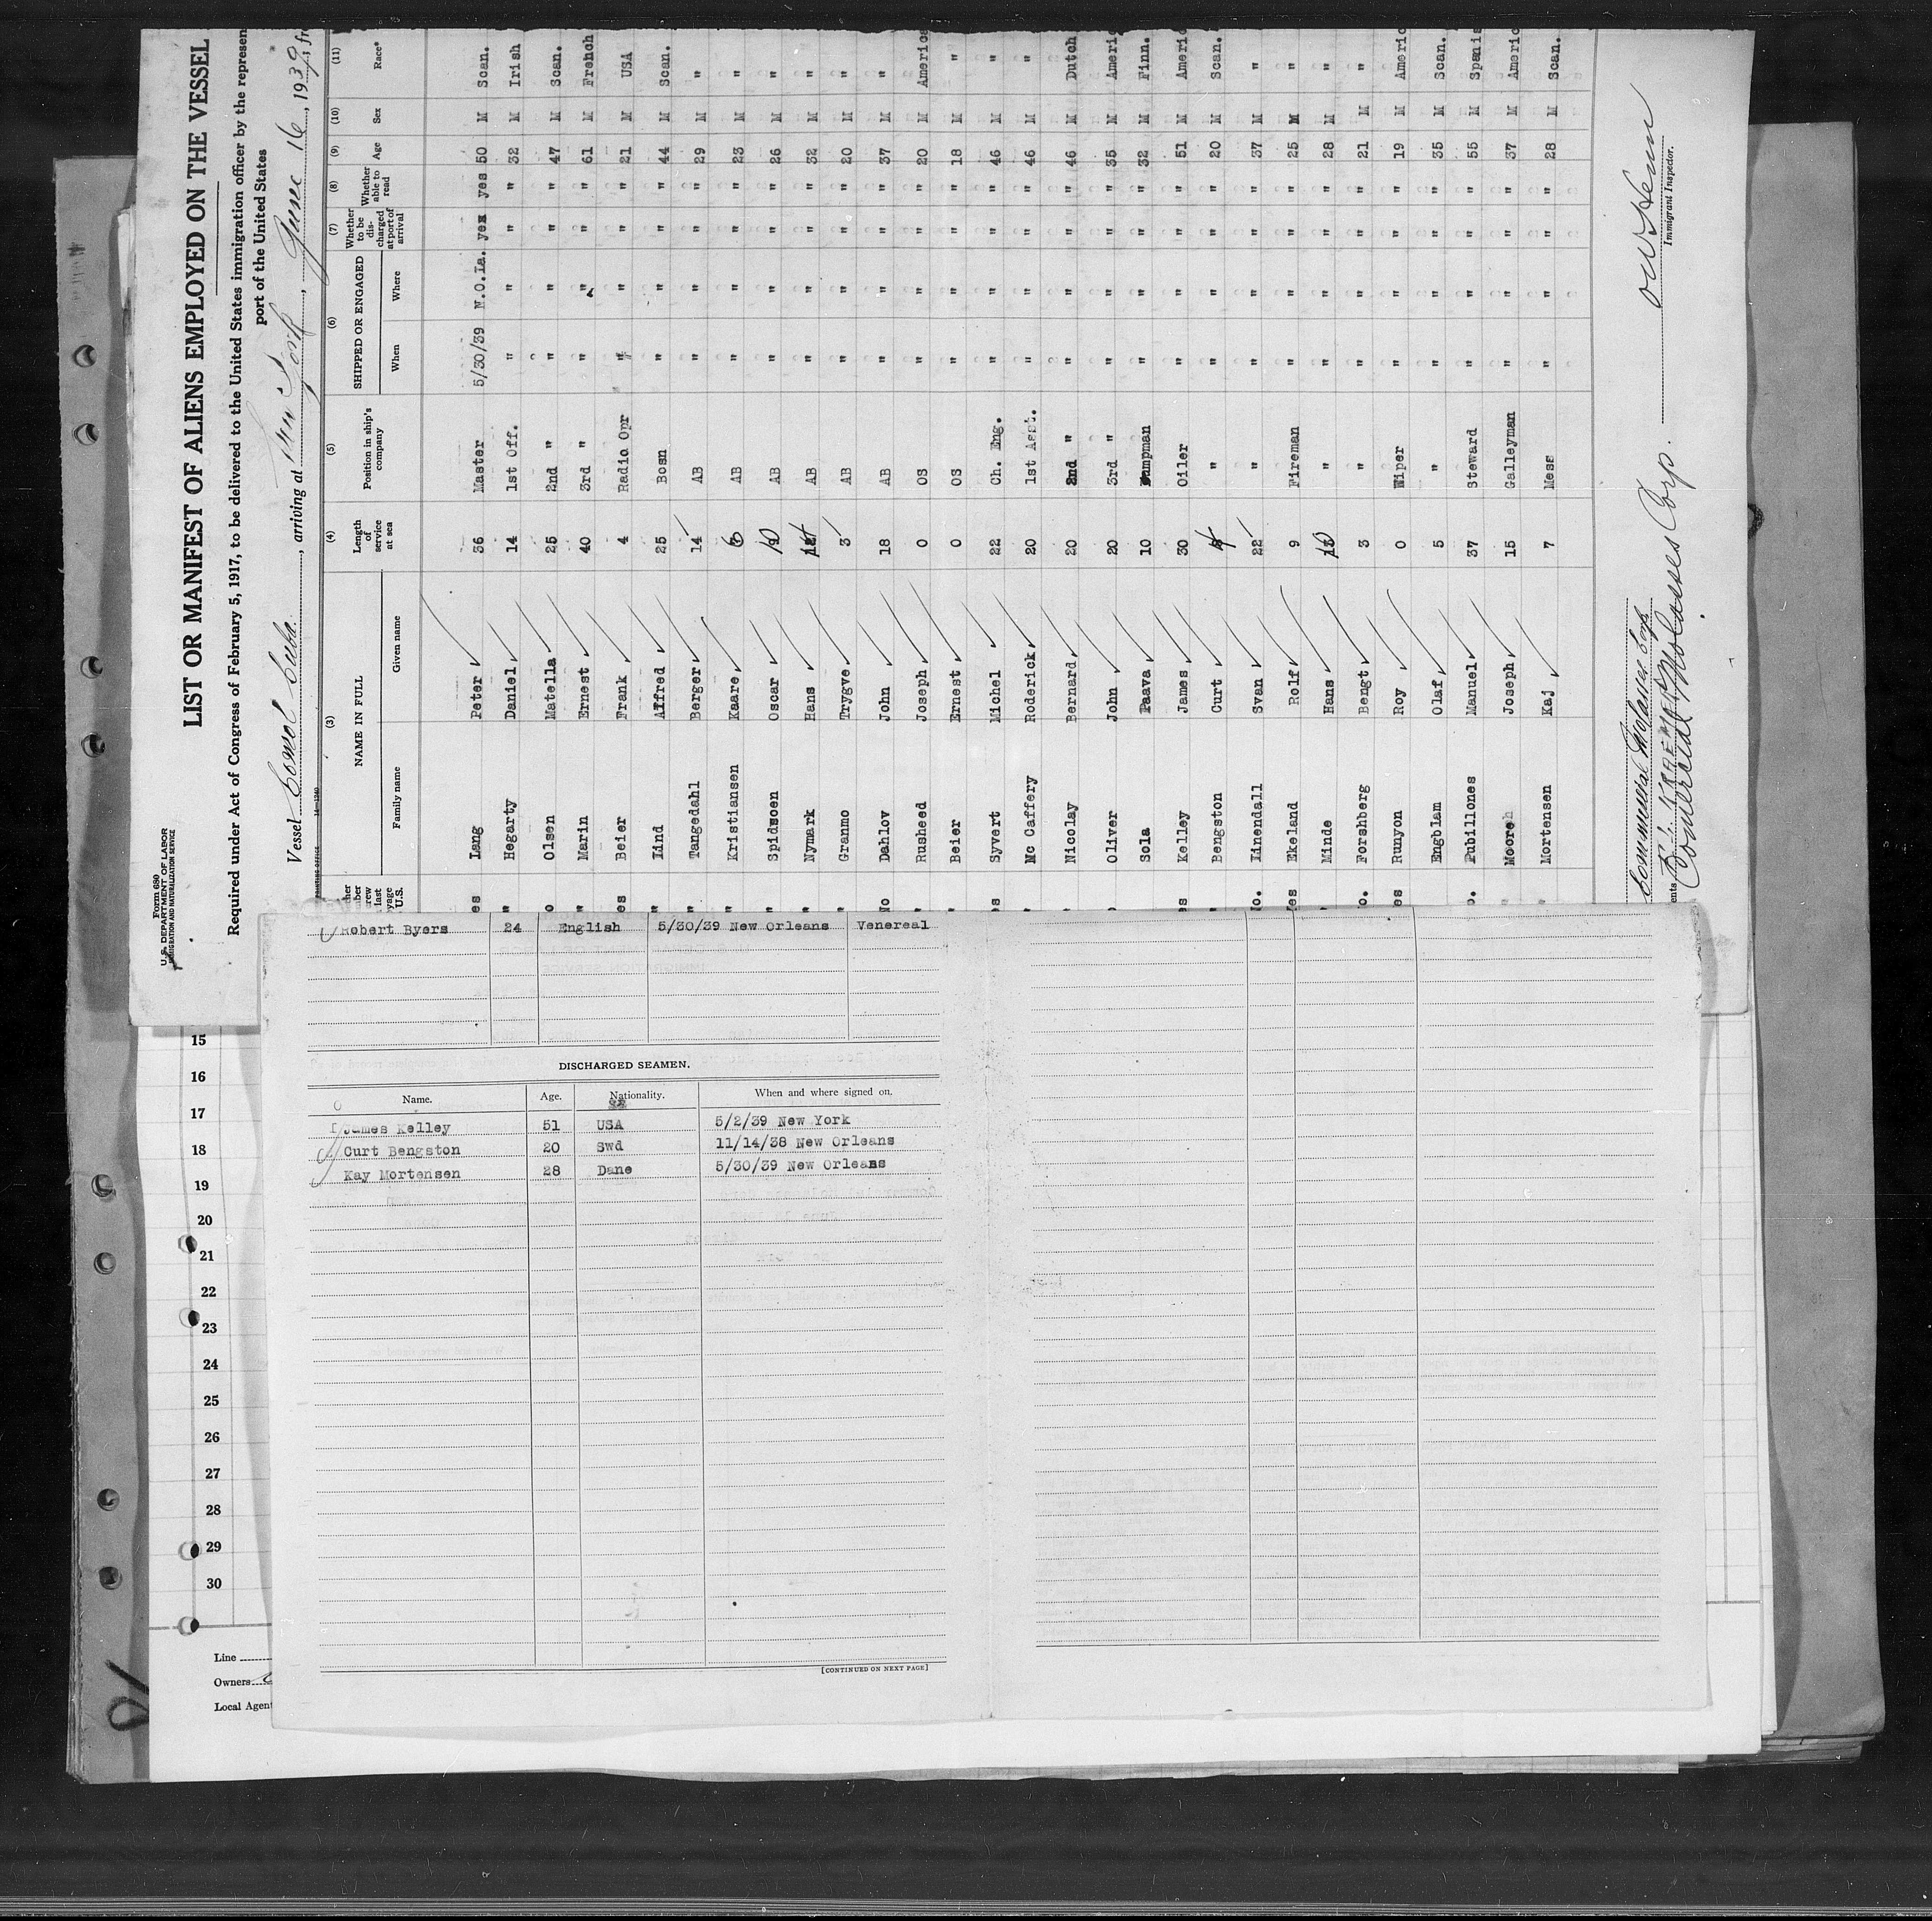 Form 680
U.S. DEPARTMENT OF LABOR
IMMIGRATION AND NATURALIZATION SERVICE
LIST OR MANIFEST OF ALIENS EMPLOYED ON THE VESSEL
Required under Act of Congress of February 5, 1917, to be delivered to the United States immigration officer by the represen
port of the United States
Vessel Comol Cuba, arriving at New York, June 16, 1939, fr
(3) (4) (5) (6) (7) (8) (9) (10) (11)
NAME IN FULL
Family name Given name
Length of service at sea
Position in ship's company
SHIPPED OR ENGAGED
When Where
Whether to be discharged at port of arrival
Whether able to read
Age Sex Race*
Lang Peter 36 Master 5/30/39 N.O.La. yes yes 50 M Scan.
Hegarty Daniel 14 1st Off. " " " " 32 M Irish
Olsen Matella 25 2nd " " " " " 47 M Scan.
Marin Ernest 40 3rd " " " " " 61 M French
Beier Frank 4 Radio Opr " " " " 21 M USA
Lind Alfred 25 Bosn " " " " 44 M Scan.
Tangedahl Berger 14 AB " " " " 29 M "
Kristiansen Kaare 6 AB " " " " 23 M "
Spidsoen Oscar 10 AB " " " " 26 M "
Nymark Hans AB " " " " 32 M "
Granmo Trygve 3 AB " " " " 20 M "
Dahlov John 18 AB " " " " 37 M "
Rusheed Joseph 0 OS " " " " 20 M America
Beier Ernest 0 OS " " " " 18 M "
Syvert Michel 22 Ch. Eng. " " " " 46 M "
Mc Caffery Roderick 20 1st Asst. " " " " 46 M "
Nicolay Bernard 20 2nd " " " " " 46 M Dutch
Oliver John 20 3rd " " " " " 35 M Americ
Sola Paava 10 Pumpman " " " " 32 M Finn.
Kelley James 30 Oiler " " " " 51 M Americ
Bengston Curt 4 " " " " " 20 M Scan.
Linendall Svan 22 " " " " " 37 M "
Ekeland Rolf 9 Fireman " " " " 25 M "
Minde Hans 10 " " " " " 28 M "
Forshberg Bengt 3 " " " " " 21 M "
Runyon Roy 0 Wiper " " " " 19 M Americ
Engblam Olaf 5 " " " " " 35 M Scan.
Pubillones Manuel 37 Steward " " " " 55 M Spanis
Moore Joseph 15 Galleyman " " " " 37 M Americ
Mortensen Kaj 7 Mess " " " " 28 M Scan.
Commercial Molasses Corp
Commercial Molasses Corp.
Immigrant Inspector.
Robert Byers 24 English 5/30/39 New Orleans Venereal
DISCHARGED SEAMEN.
Name. Age. Nationality. When and where signed on.
James Kelley 51 USA 5/2/39 New York
Curt Bengston 20 Swd 11/14/38 New Orleans
Kay Mortensen 28 Dane 5/30/39 New Orleans
[CONTINUED ON NEXT PAGE]
15
16
17
18
19
20
21
22
23
24
25
26
27
28
29
30
Line
Owners
Local Agent